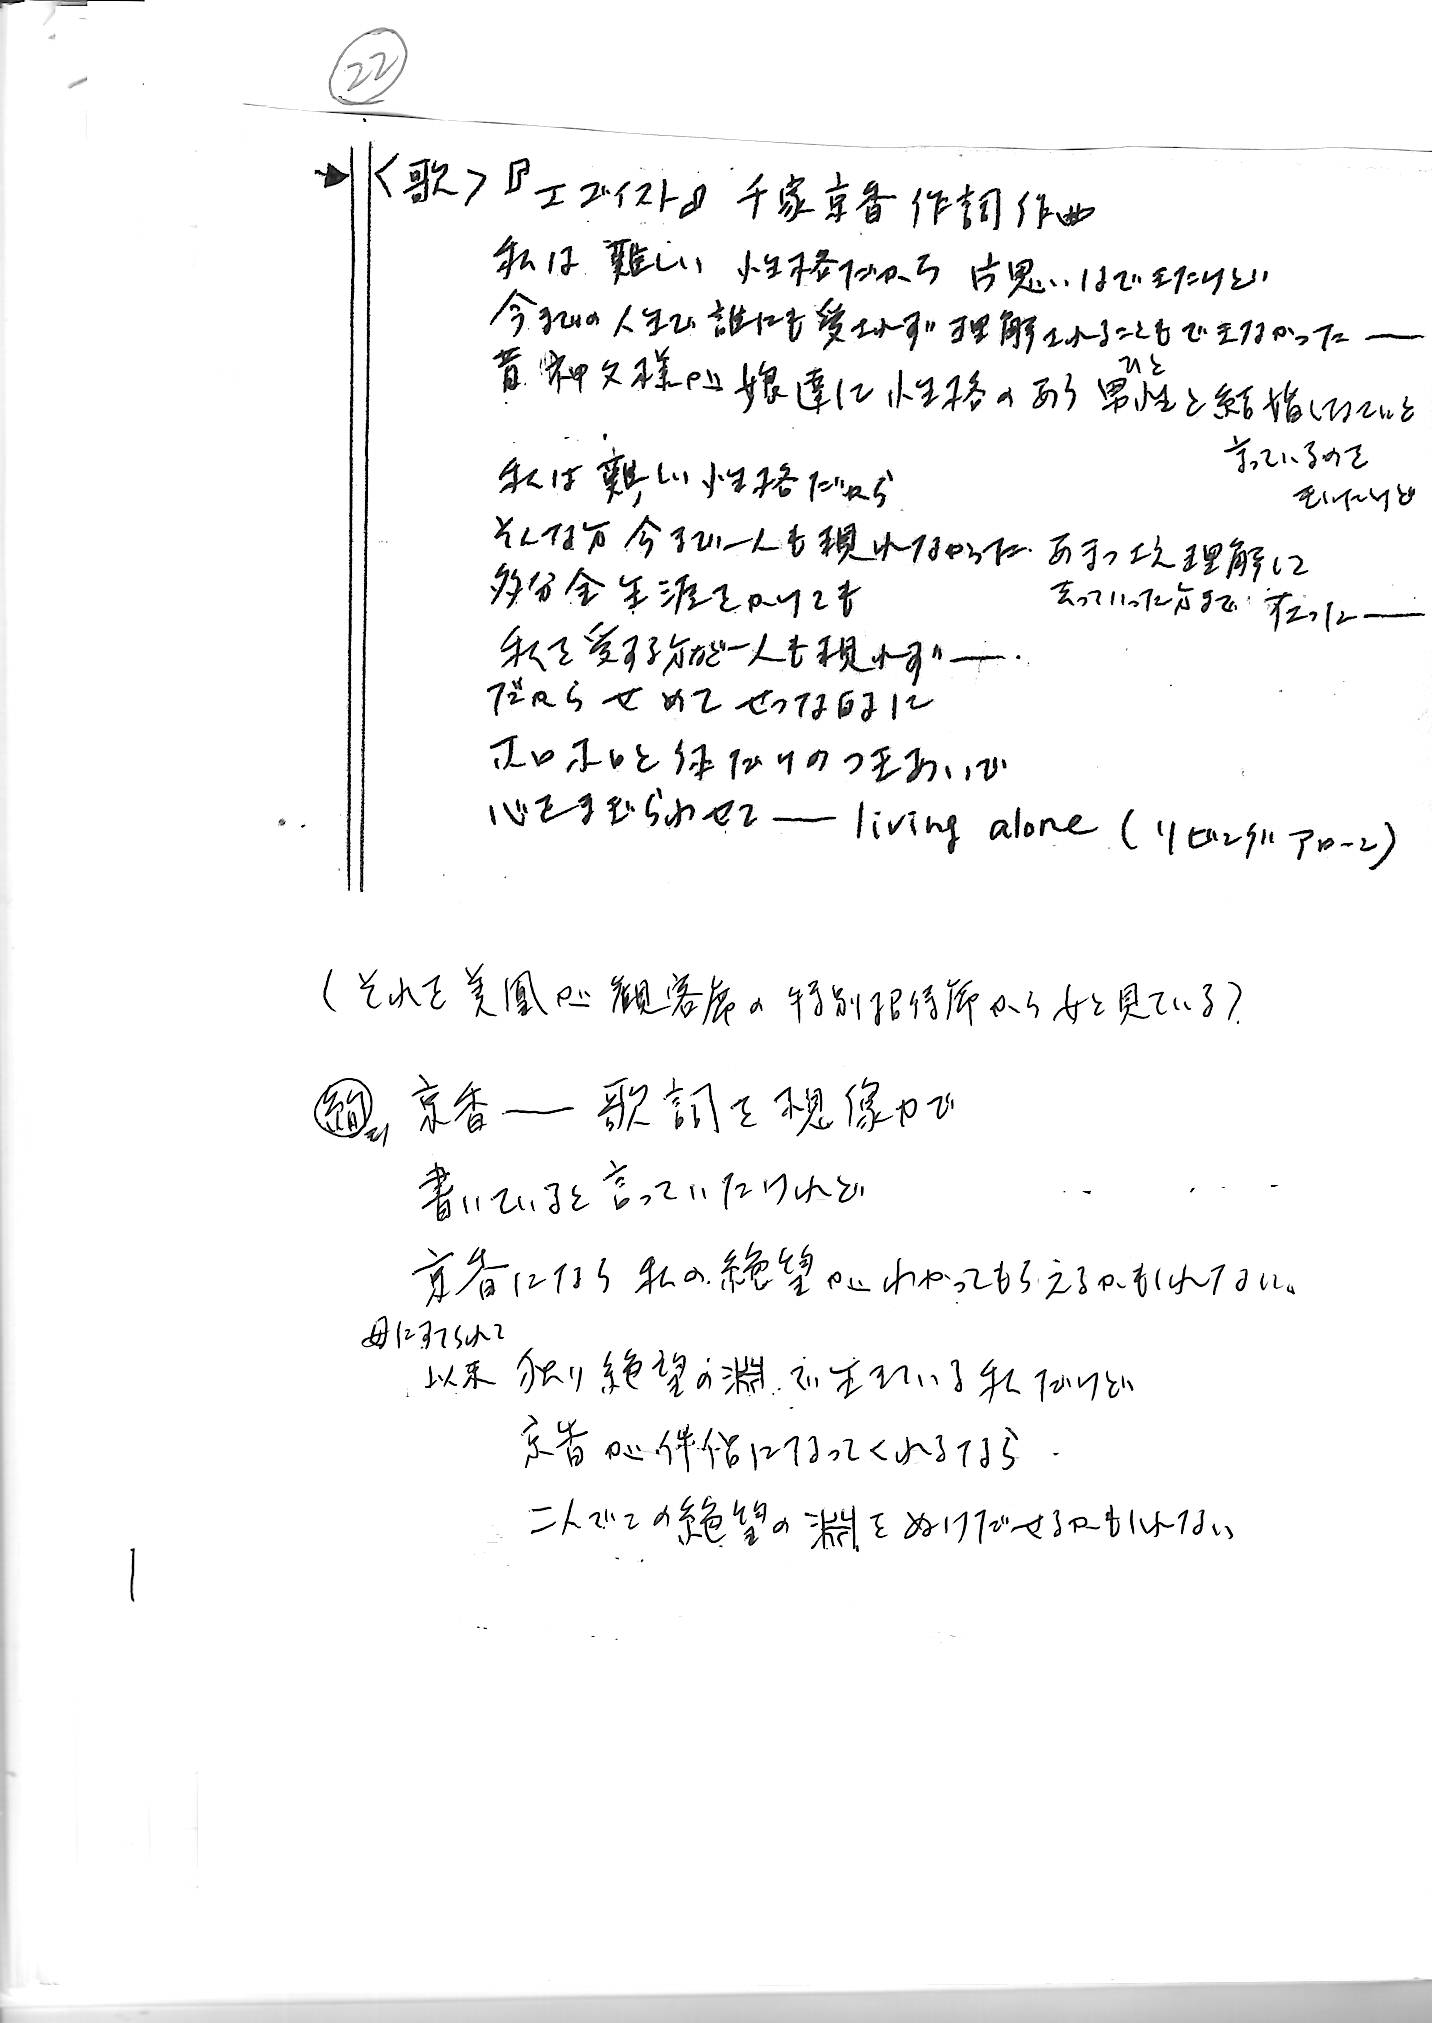 22
<歌>『エゴイスト』 千家京香 作詞作曲
私は 難しい 性格だから 片思いはできたけど
今までの 人生で 誰にも愛されず 理解されることもできなかった ―
昔 神父様が 娘達に 性格の あう 男性と 結婚しなさいと
ひと
言っているのを
きいたけど
私は 難しい 性格だから
そんな方 今まで一人も現れなかった あまつさえ理解して
去っていった方まで 在った―
多分全生涯をかけても
私を愛する方が一人も現れず―
だから せめて せつな的に
ボロボロと 体だけの つきあいで
心をまぎらわせて ― living alone (リビングアローン)
(それを美凰が 観客席の 特別招待席から 見ている)
京香― 歌詞を想像力で
書いていると 言っていたけれど
京香になら 私の絶望が わかってもらえるかもしれない。
母にすてられて
以来 独り 絶望の淵で生きている 私だけど
京香が伴侶になってくれるなら
二人でこの絶望の淵を ぬけだせるかもしれない